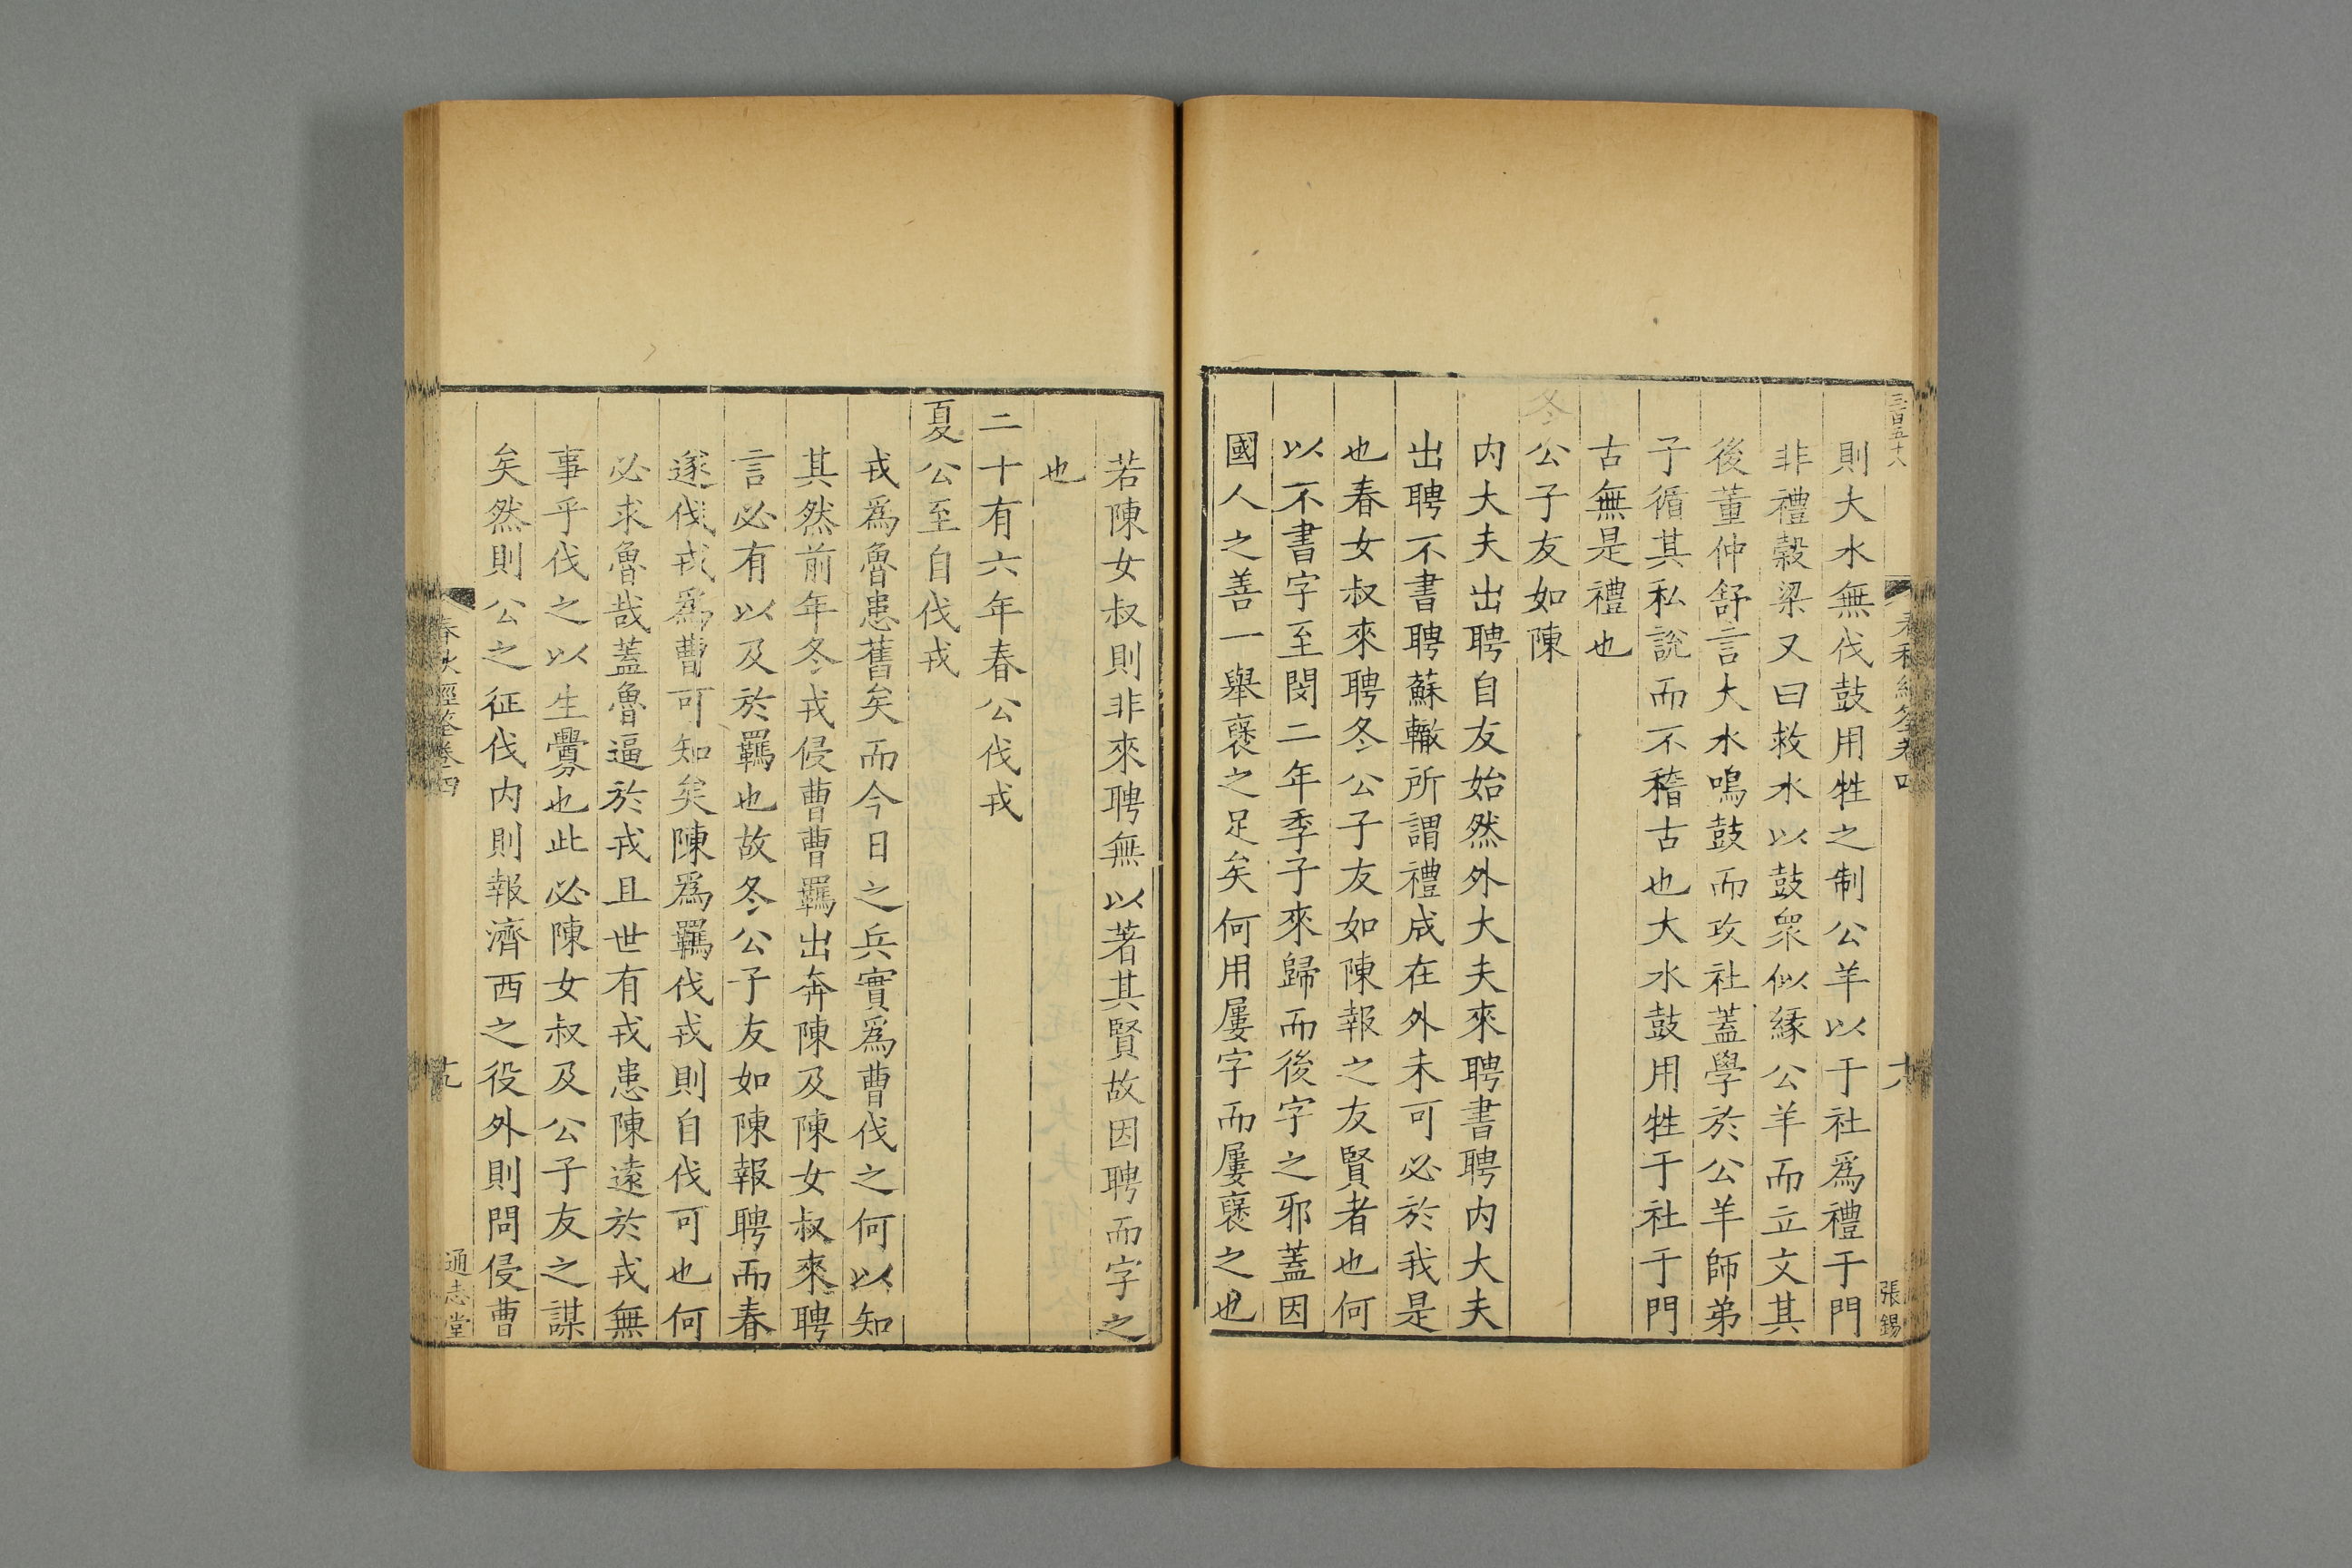 三百五十八
春秋經筌卷四
十八
張錫
則大水無伐鼓用牲之制公羊以于社爲禮于門
非禮穀梁又曰救水以鼓衆似緣公羊而立文其
後董仲舒言大水鳴鼓而攻社蓋學於公羊師弟
子循其私說而不稽古也大水鼓用牲于社于門
古無是禮也
冬公子友如陳
内大夫出聘自友始然外大夫來聘書聘内大夫
出聘不書聘蘇轍所謂禮成在外未可必於我是
也春女叔來聘冬公子友如陳報之友賢者也何
以不書字至閔二年季子來歸而後字之邪蓋因
國人之善一舉襃之足矣何用屢字而屢襃之也
若陳女叔則非來聘無以著其賢故因聘而字之
也
二十有六年春公伐戎
夏公至自伐戎
戎爲魯患舊矣而今日之兵實爲曹伐之何以知
其然前年冬戎侵曹曹羈出奔陳及陳女叔來聘
言必有以及於羈也故冬公子友如陳報聘而春
遂伐戎爲曹可知矣陳爲羈伐戎則自伐可也何
必求魯哉蓋魯逼於戎且世有戎患陳遠於戎無
事乎伐之以生釁也此必陳女叔及公子友之謀
矣然則公之征伐内則報濟西之役外則問侵曹
春秋經筌卷四
十九
通志堂